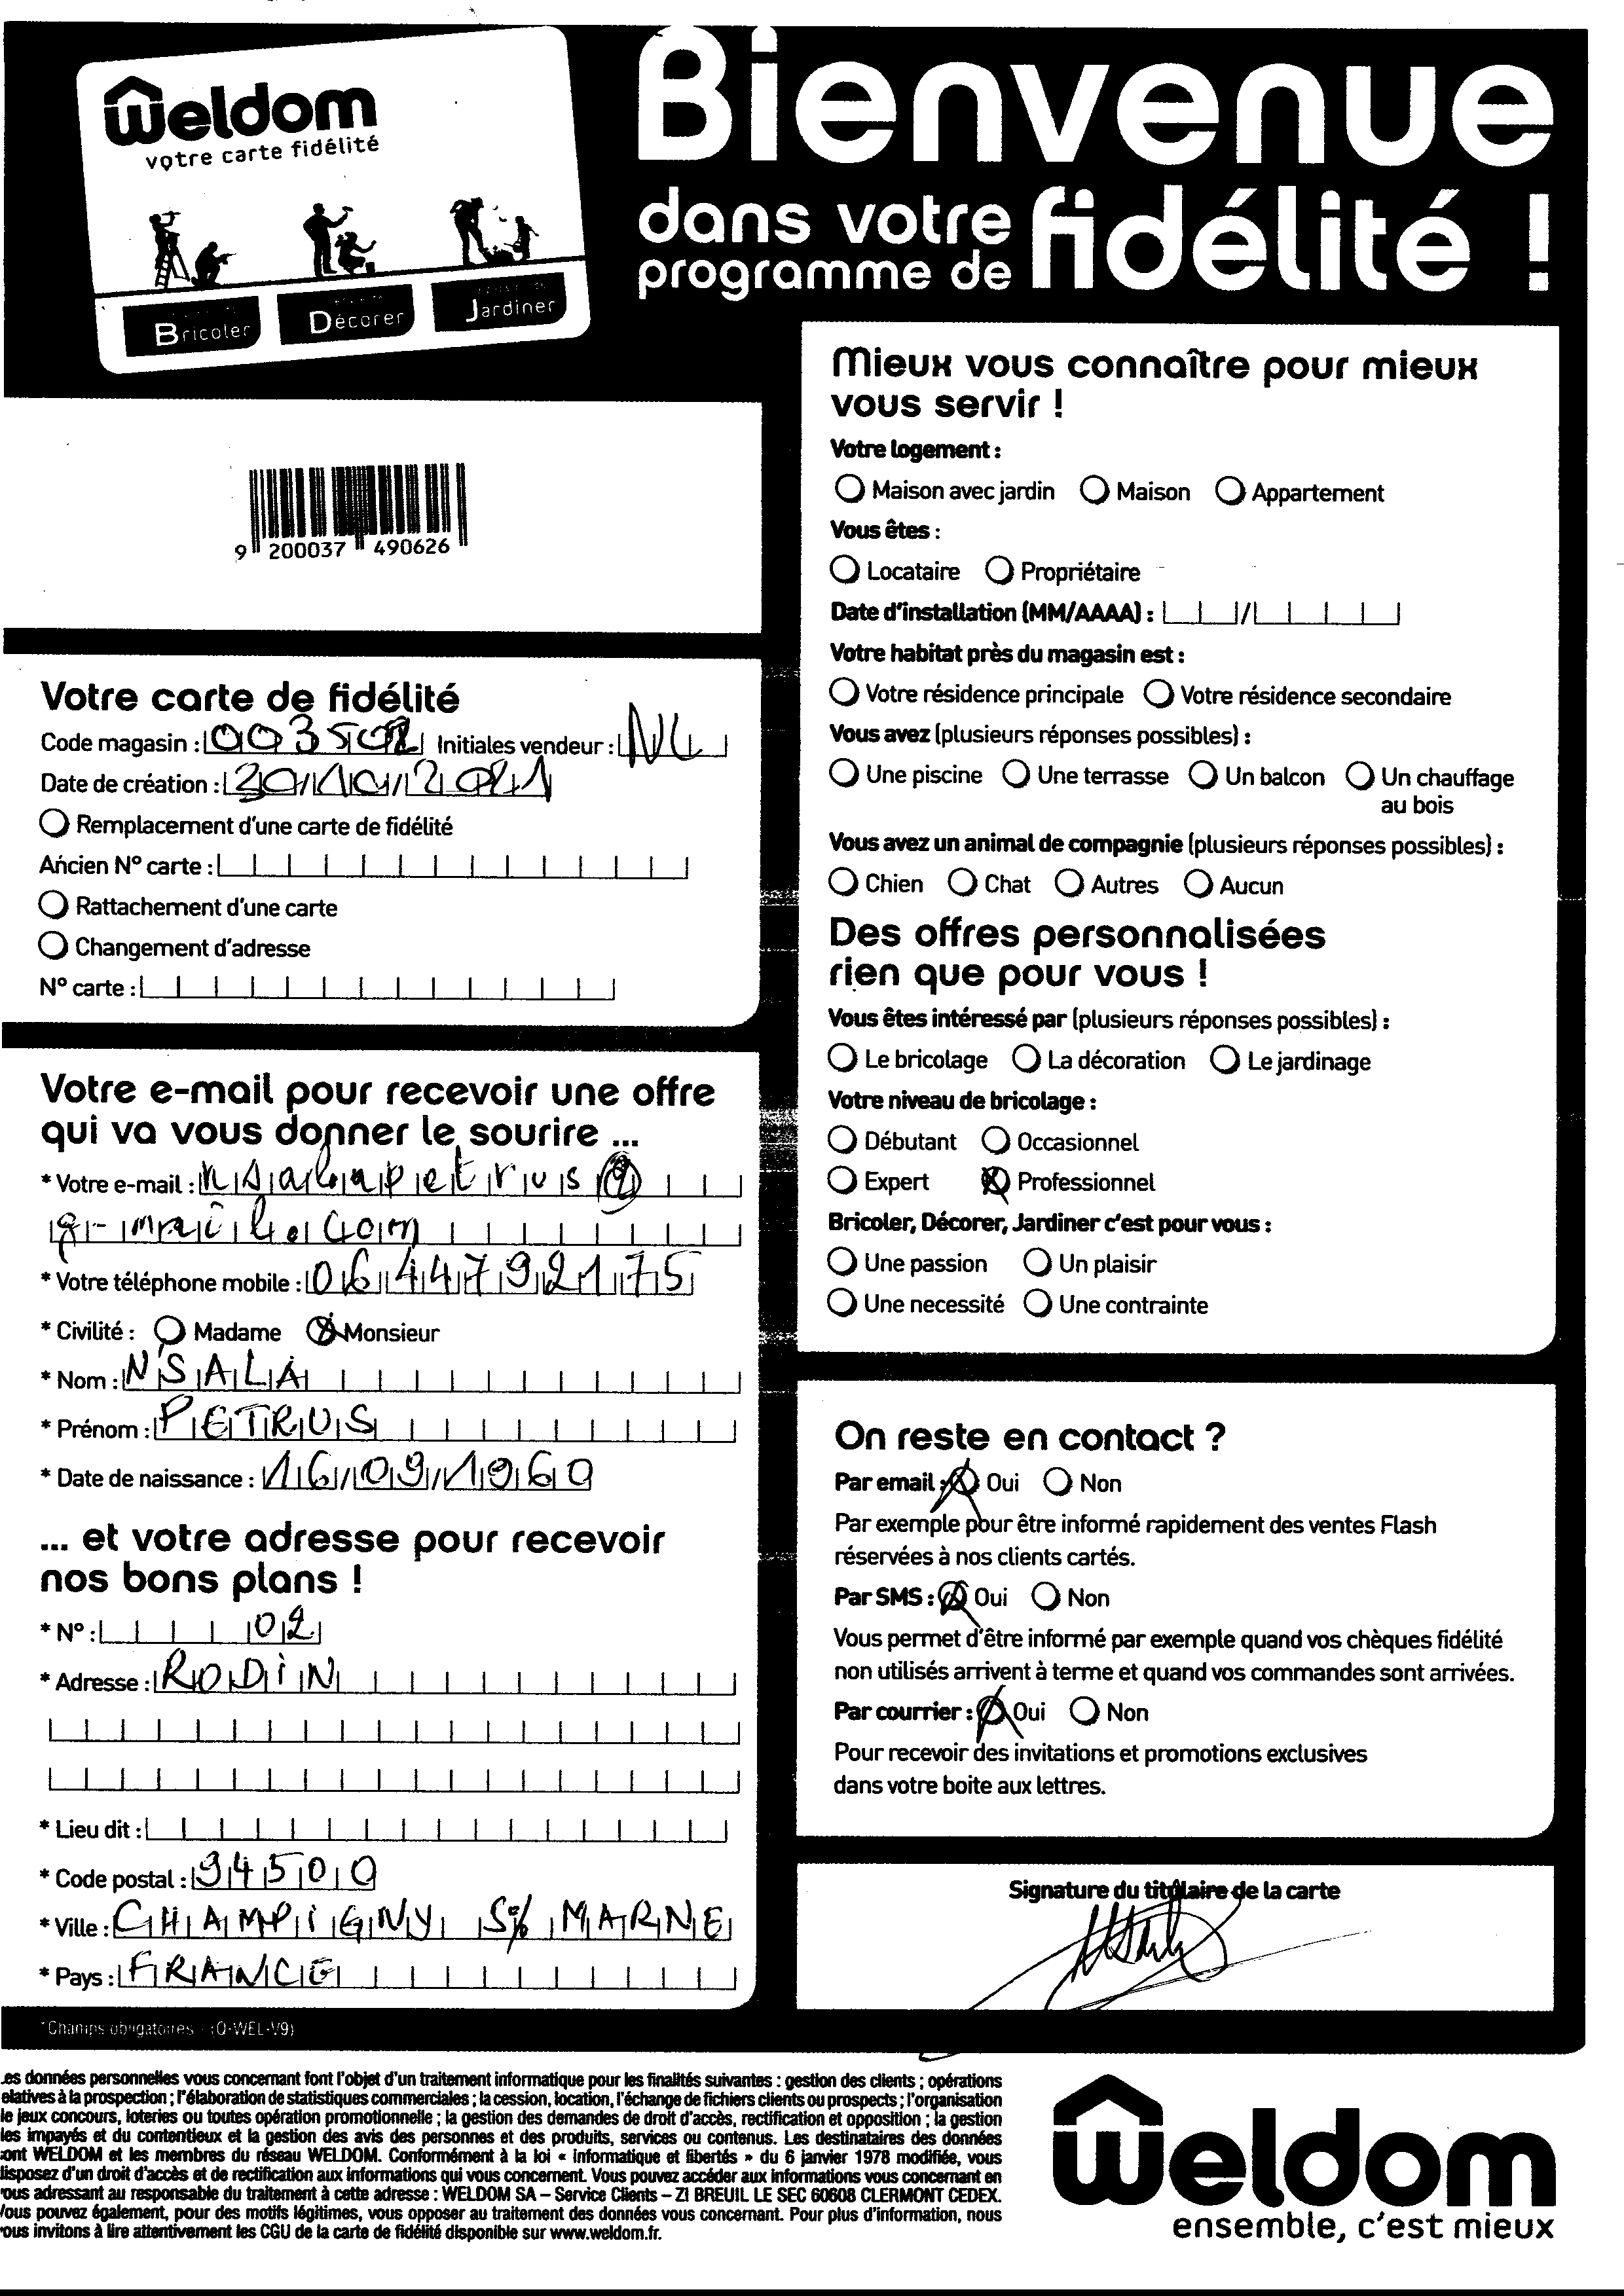 Weldom
votre carte fidélité
Bricoler
Décorer
Jardiner
Bienvenue
dans votre
programme de
fidélité !
9 200037 490626
Votre carte de fidélité
Code magasin : 003502 Initiales vendeur : NL
Date de création : 30/10/2021
Remplacement d'une carte de fidélité
Ancien N° carte :
Rattachement d'une carte
Changement d'adresse
N° carte :
Votre e-mail pour recevoir une offre
qui va vous donner le sourire ...
* Votre e-mail : nsalapetrus@
gmail.com
* Votre téléphone mobile : 0644792175
* Civilité : Madame Monsieur
* Nom : NSALA
* Prénom : PETRUS
* Date de naissance : 16/09/1960
... et votre adresse pour recevoir
nos bons plans !
* N° : 02
* Adresse : RODIN
* Lieu dit :
* Code postal : 94500
* Ville : CHAMPIGNY S/ MARNE
* Pays : FRANCE
*Champs obligatoires - (O-WEL-V9)
Mieux vous connaître pour mieux
vous servir !
Votre logement :
Maison avec jardin Maison Appartement
Vous êtes :
Locataire Propriétaire
Date d'installation (MM/AAAA) : /
Votre habitat près du magasin est :
Votre résidence principale Votre résidence secondaire
Vous avez (plusieurs réponses possibles) :
Une piscine Une terrasse Un balcon Un chauffage
au bois
Vous avez un animal de compagnie (plusieurs réponses possibles) :
Chien Chat Autres Aucun
Des offres personnalisées
rien que pour vous !
Vous êtes intéressé par (plusieurs réponses possibles) :
Le bricolage La décoration Le jardinage
Votre niveau de bricolage :
Débutant Occasionnel
Expert Professionnel
Bricoler, Décorer, Jardiner c'est pour vous :
Une passion Un plaisir
Une necessité Une contrainte
On reste en contact ?
Par email : Oui Non
Par exemple pour être informé rapidement des ventes Flash
réservées à nos clients cartés.
Par SMS : Oui Non
Vous permet d'être informé par exemple quand vos chèques fidélité
non utilisés arrivent à terme et quand vos commandes sont arrivées.
Par courrier : Oui Non
Pour recevoir des invitations et promotions exclusives
dans votre boite aux lettres.
Signature du titulaire de la carte
es données personnelles vous concernant font l'objet d'un traitement informatique pour les finalités suivantes : gestion des clients ; opérations
elatives à la prospection ; l'élaboration de statistiques commerciales ; la cession, location, l'échange de fichiers clients ou prospects ; l'organisation
le jeux concours, loteries ou toutes opération promotionnelle ; la gestion des demandes de droit d'accès, rectification et opposition ; la gestion
les impayés et du contentieux et la gestion des avis des personnes et des produits, services ou contenus. Les destinataires des données
ont WELDOM et les membres du réseau WELDOM. Conformément à la loi « informatique et libertés » du 6 janvier 1978 modifiée, vous
lisposez d'un droit d'accès et de rectification aux informations qui vous concernent. Vous pouvez accéder aux informations vous concernant en
ous adressant au responsable du traitement à cette adresse : WELDOM SA – Service Clients – ZI BREUIL LE SEC 60608 CLERMONT CEDEX.
ous pouvez également, pour des motifs légitimes, vous opposer au traitement des données vous concernant. Pour plus d'information, nous
ous invitons à lire attentivement les CGU de la carte de fidélité disponible sur www.weldom.fr.
Weldom
ensemble, c'est mieux